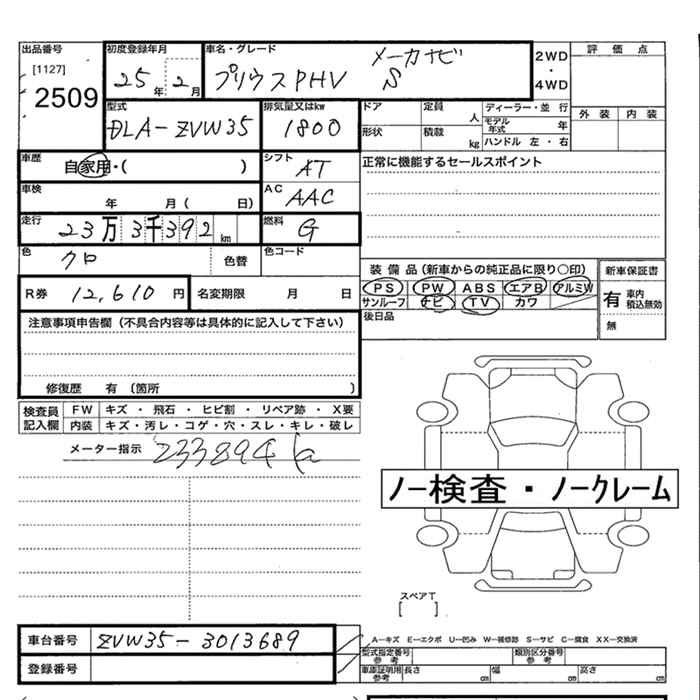 出品番号
[1127]
2509
初度登録年月
25年2月
車名・グレード
メーカナビ
プリウスPHV S
2WD
・
4WD
評価点
外装 内装
型式
DLA-ZVW35
排気量又はkw
1800
ドア
定員 人
ディーラー・並行
モデル年式 年
形状
積載 kg
ハンドル 左・右
車歴
自家用・( )
シフト
AT
正常に機能するセールスポイント
車検
年 月( 日)
AC
AAC
走行
23万3千392km
燃料
G
色
クロ
色替
色コード
装備品(新車からの純正品に限り○印)
新車保証書
PS PW ABS エアB アルミW
サンルーフ ナビ TV カワ
有 車内積込無効
無
後日品
R券
12,610円
名変期限 月 日
注意事項申告欄(不具合内容等は具体的に記入して下さい)
修復歴 有 〔箇所 〕
検査員記入欄
FW キズ・飛石・ヒビ割・リペア跡・X要
内装 キズ・汚レ・コゲ・穴・スレ・キレ・破レ
メーター指示
233894
ノー検査・ノークレーム
スペアT
[ ]
車台番号
ZVW35-3013689
登録番号
A-キズ E-エクボ U-凹み W-補修跡 S-サビ C-腐食 XX-交換済
型式指定番号
参考
類別区分番号
参考
車庫証明用
参考
長さ cm
幅 cm
高さ cm